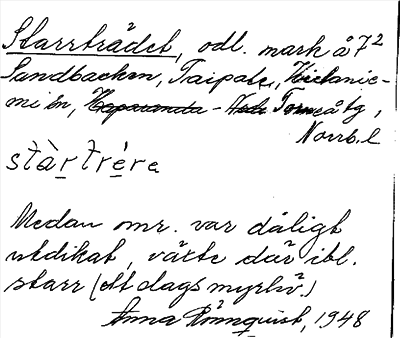 Starrträdet, odl. mark å 7²
Sandbacken, Taipale,
mi by, Torneå tg,
Norrb. l
stàrtrére
Medan omr. var dåligt
utdikat, växte där ibl.
starr (ett slags myrhö.)
Anna Rönnquist, 1948